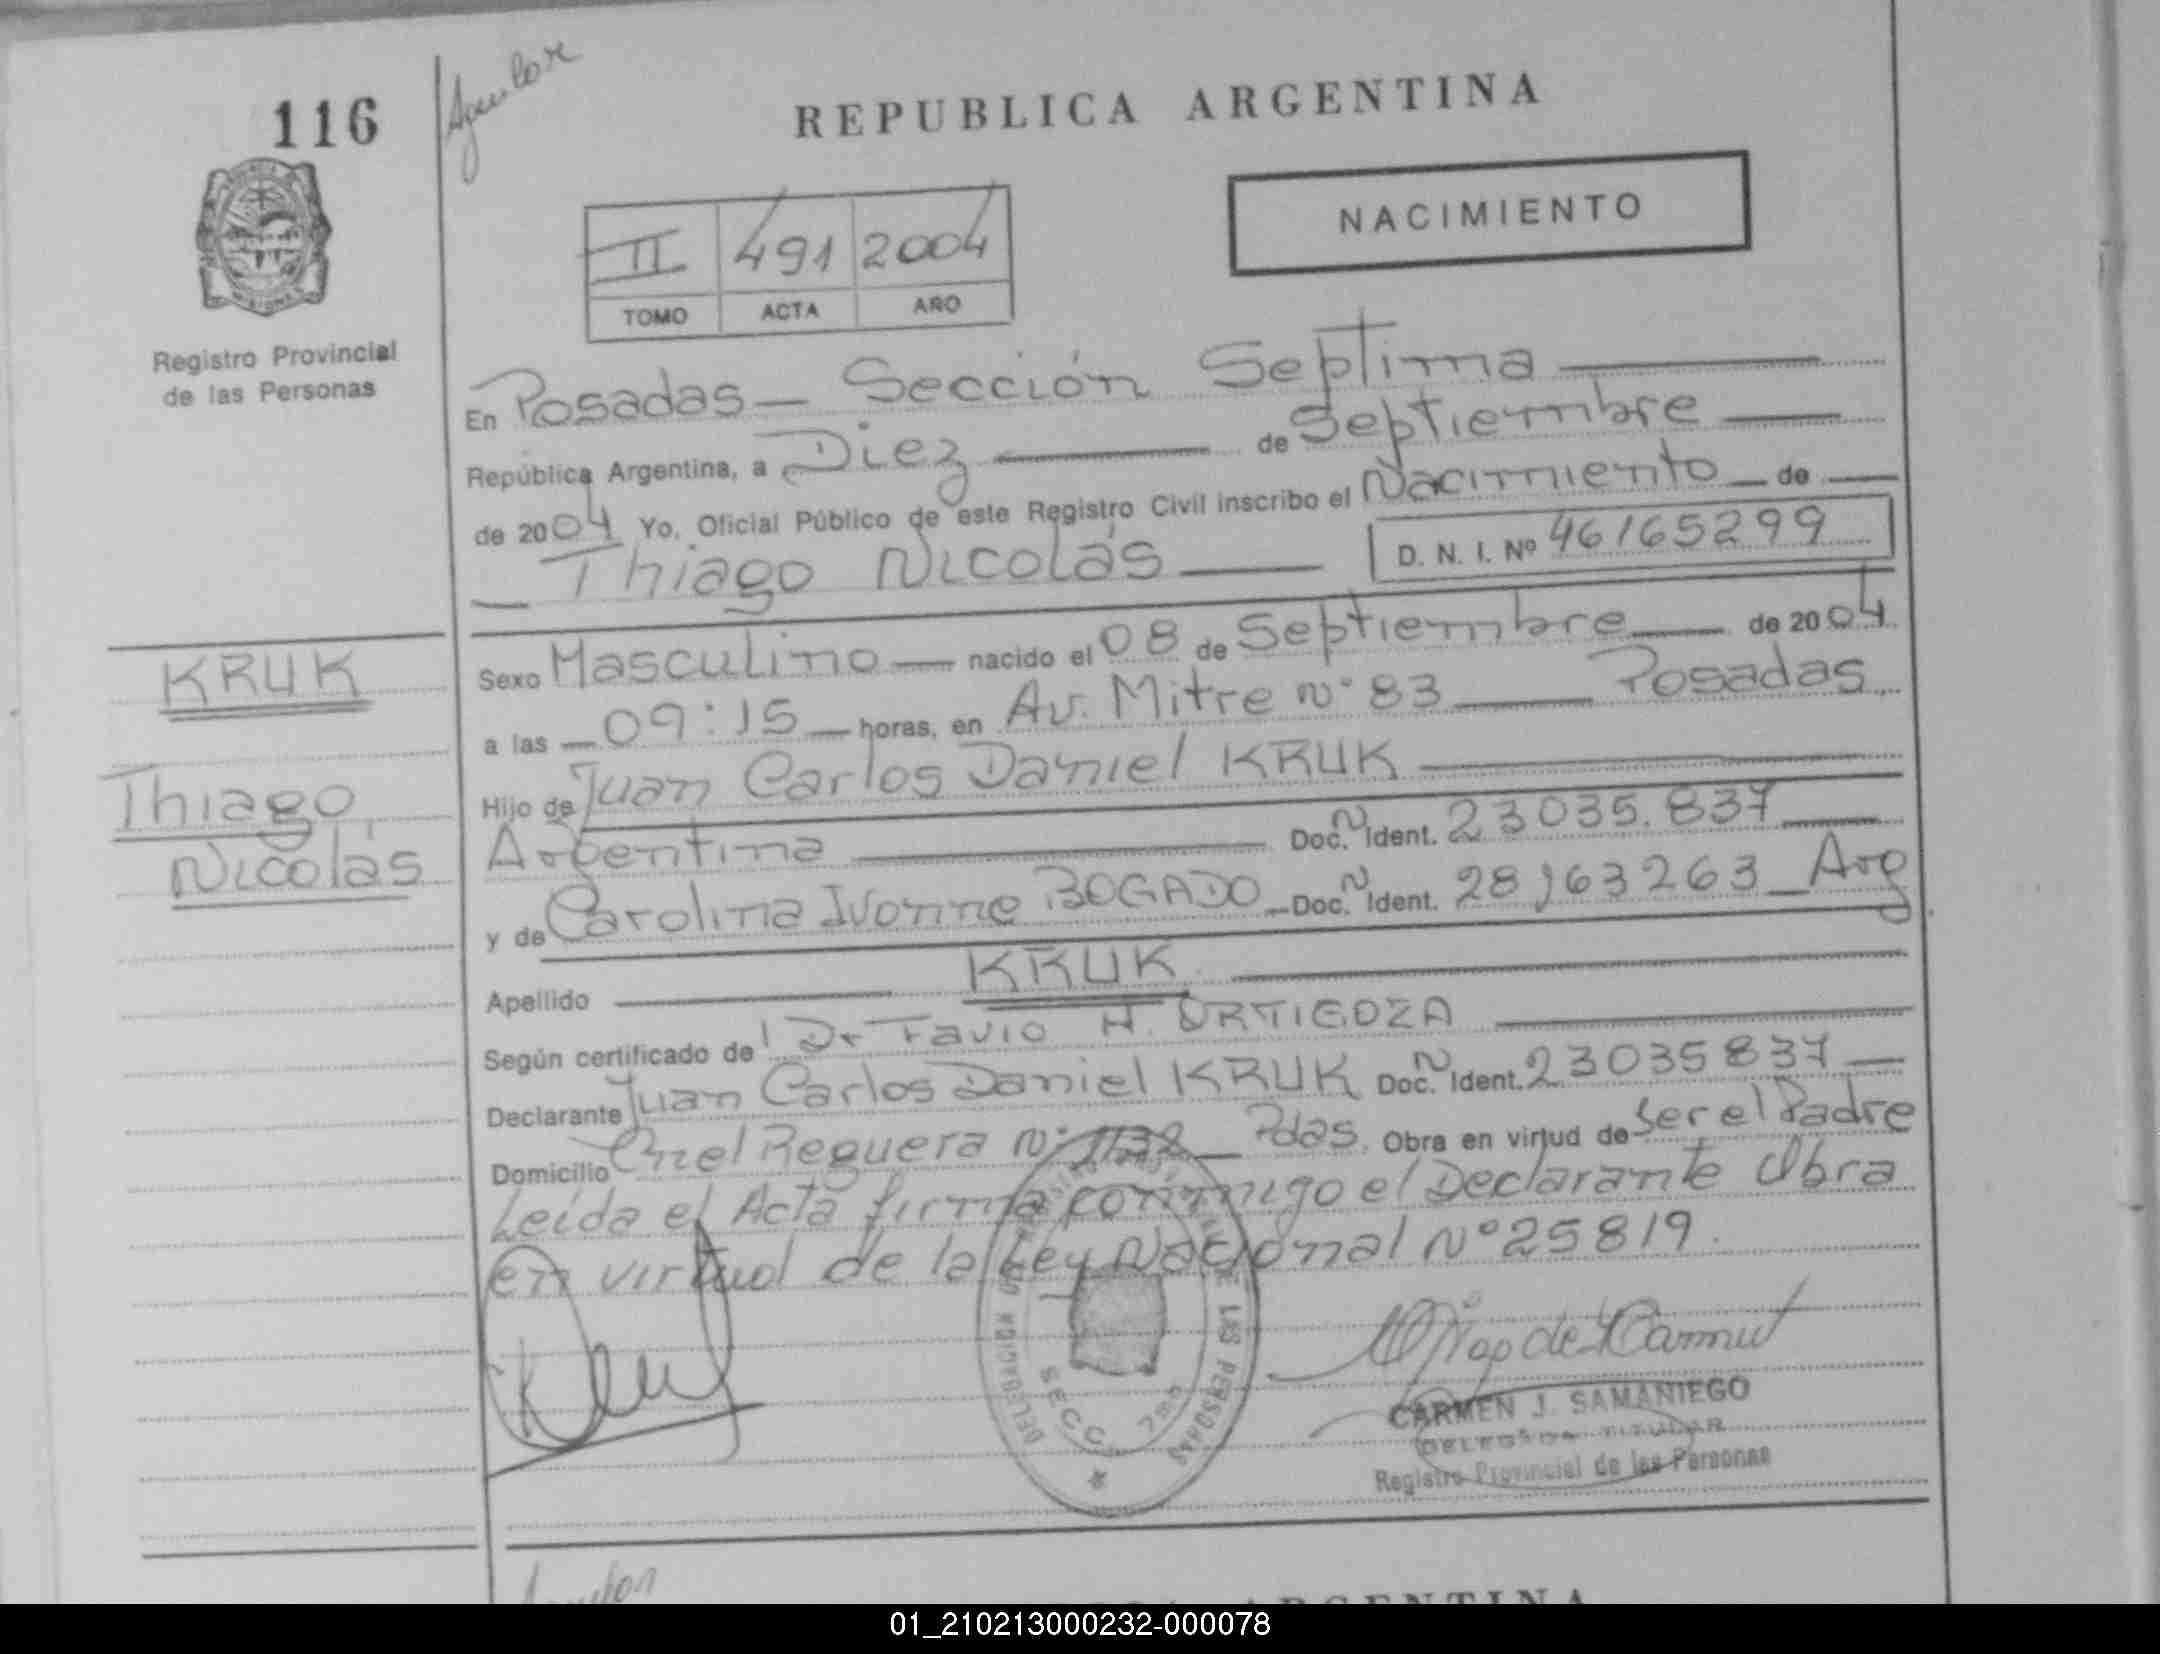 116
Aguilar
REPUBLICA ARGENTINA
NACIMIENTO
II 491 2004
TOMO ACTA AÑO
MISIONES
Registro Provincial
de las Personas
En Posadas - Sección Septima
República Argentina, a Diez de Septiembre
de 2004 Yo, Oficial Público de este Registro Civil inscribo el Nacimiento de
Thiago Nicolás D. N. I. Nº 46165299
KRUK
Thiago
Nicolás
Sexo Masculino nacido el 08 de Septiembre de 2004
a las 09:15 horas, en Av. Mitre n° 83 Posadas
Hijo de Juan Carlos Daniel KRUK
Argentina Doc. N Ident. 23035.837
y de Carolina Ivonne BOGADO Doc. N Ident. 28163263 Arg
Apellido KRUK
Según certificado de Dr Favio H. ORTIGOZA
Declarante Juan Carlos Daniel KRUK Doc. N Ident. 23035837
Domicilio Cnel Reguera N° 1138 Pdas. Obra en virtud de Ser el Padre
Leida el Acta firma conmigo el Declarante Obra
en virtud de la Ley Nacional N° 25819.
SECC. 7ma
DE LAS PERSONAS
CARMEN J. SAMANIEGO
DELEGADA TITULAR
Registro Provincial de las Personas
ARGENTINA
01_210213000232-000078